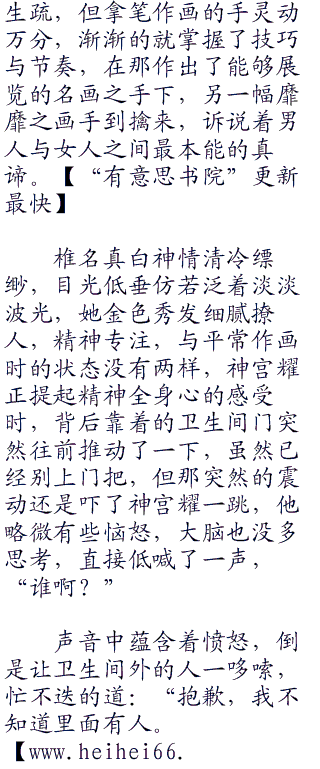 生疏，但拿笔作画的手灵动
万分，渐渐的就掌握了技巧
与节奏，在那作出了能够展
览的名画之手下，另一幅靡
靡之画手到擒来，诉说着男
人与女人之间最本能的真
谛。【“有意思书院”更新
最快】
椎名真白神情清冷缥
缈，目光低垂仿若泛着淡淡
波光，她金色秀发细腻撩
人，精神专注，与平常作画
时的状态没有两样，神宫耀
正提起精神全身心的感受
时，背后靠着的卫生间门突
然往前推动了一下，虽然已
经别上门把，但那突然的震
动还是吓了神宫耀一跳，他
略微有些恼怒，大脑也没多
思考，直接低喊了一声，
“谁啊？”
声音中蕴含着愤怒，倒
是让卫生间外的人一哆嗦，
忙不迭的道：“抱歉，我不
知道里面有人。
【www.heihei66.